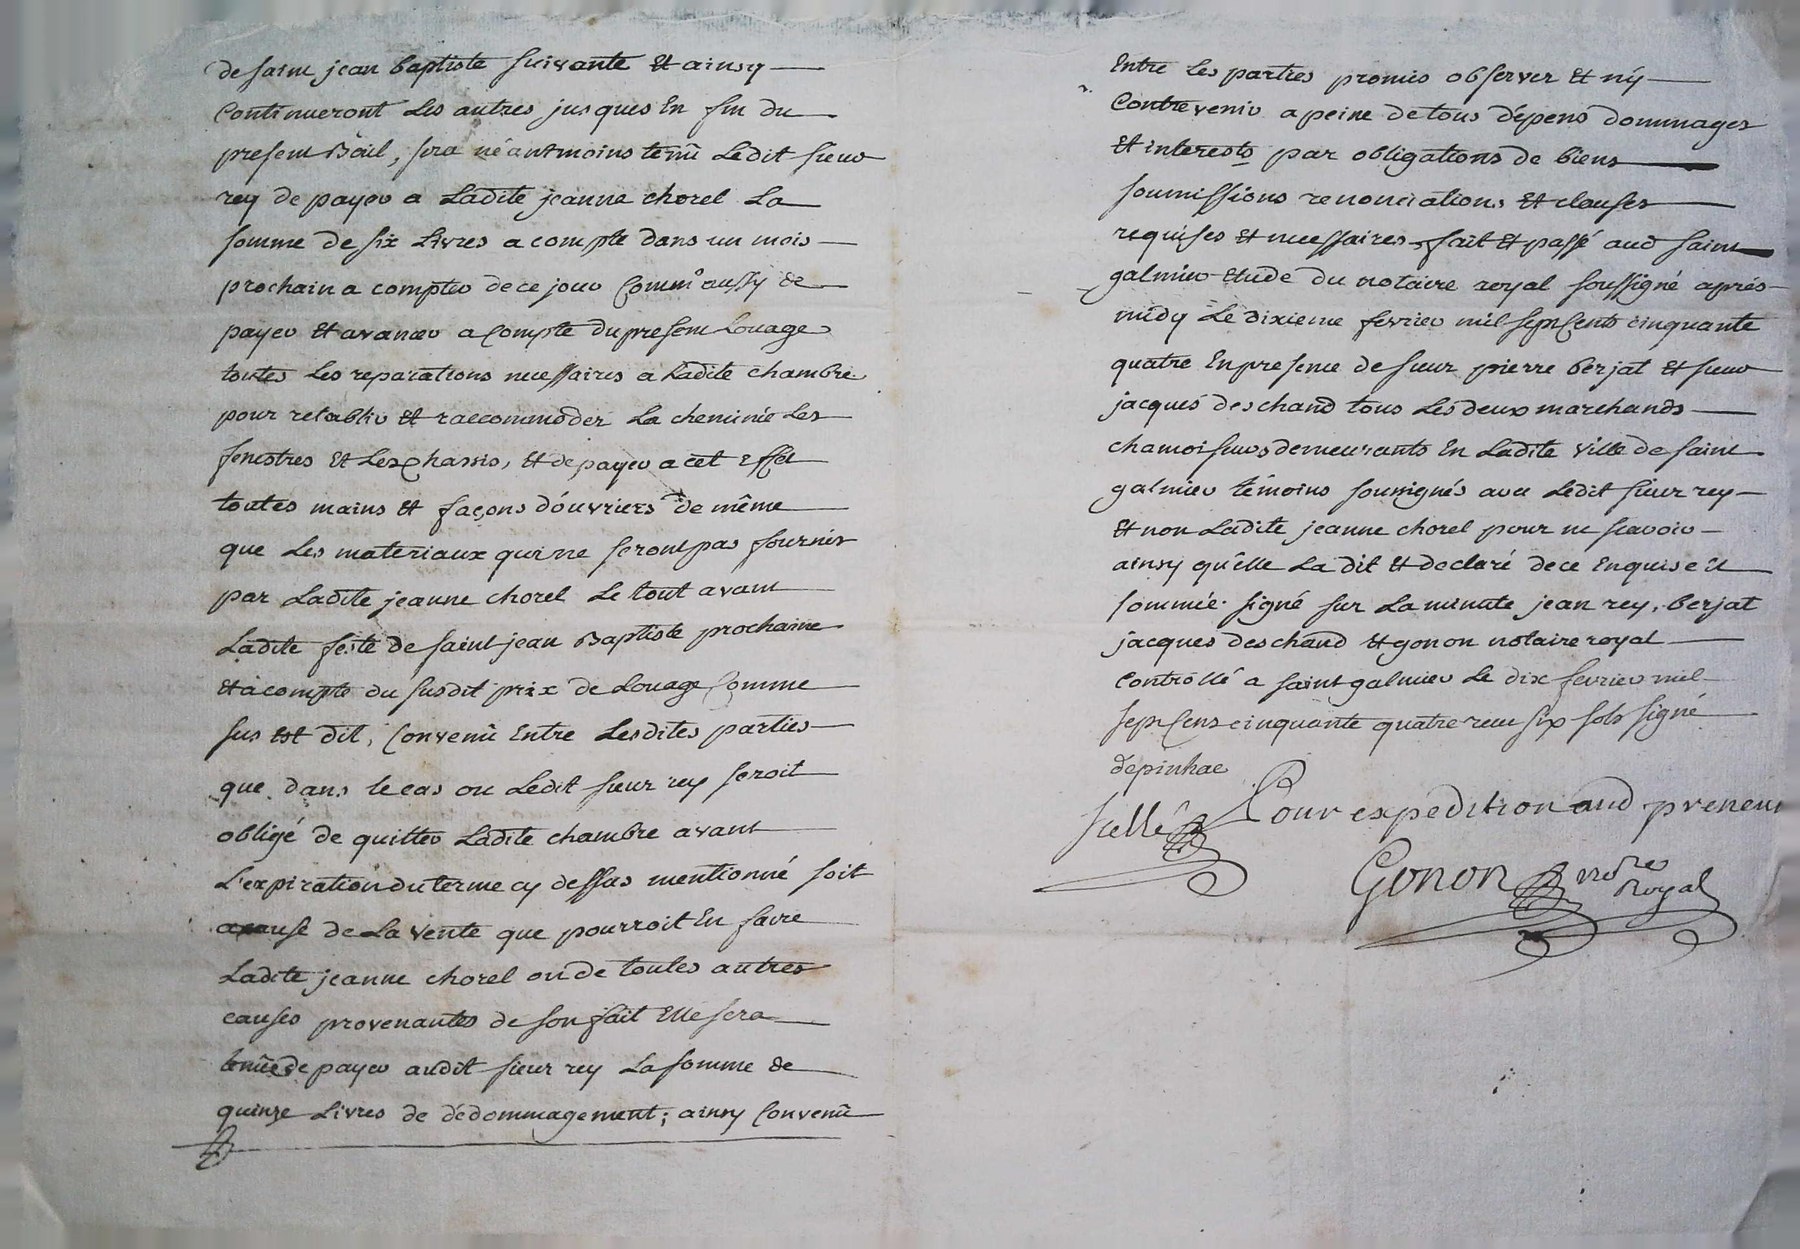 de saint jean baptiste suivante et ainsy
continueront les autres jusques en fin du
present Bail, sera néantmoins tenû ledit sieur
rey de payer a ladite jeanne chorel la
somme de six livres a compte dans un mois
prochain a compter de ce jour comm'aussy de
payer et avancer a compte du present louage
toutes les reparations necessaires a ladite chambre
pour retablir et raccommoder la cheminée les
fenestres et les chassis, et de payer a cet effet
toutes mains et façons d'ouvriers de même
que les materiaux qui ne seront pas fournis
par ladite jeanne chorel le tout avant
ladite feste de saint jean Baptiste prochaine
et à compte du susdit prix de louage comme
sus est dit, convenû entre lesdites parties
que dans le cas ou ledit sieur rey seroit
obligé de quitter ladite chambre avant
l'expiration du terme cy dessus mentionné soit
a cause de la vente que pourroit en faire
ladite jeanne chorel ou de toutes autres
causes provenantes de son fait elle sera
tenüe de payer audit sieur rey la somme de
quinze livres de dédommagement; ainsy convenû
entre les parties promis observer et ny
contrevenir a peine de tous dépens dommages
et interests par obligations de biens
soumissions renonciations et clauses
requises et necessaires, fait et passé aud saint
galmier etude du notaire royal soussigné aprés
midy le dixieme fevrier mil sept cents cinquante
quatre en presence de sieur pierre berjat et sieur
jacques deschand tous les deux marchands
chamoiseurs demeurants en ladite ville de saint
galmier témoins soussignés avec ledit sieur rey
et non ladite jeanne chorel pour ne scavoir
ainsy qu'elle la dit et declaré de ce enquise et
sommée. signé sur la minute jean rey, berjat
jacques deschand et gonon notaire royal
controllé a saint galmier le dix fevrier mil
sept cens cinquante quatre reçu six sols signé
depinhac
scellé Pour expedition aud preneur
Gonon nore
Royal